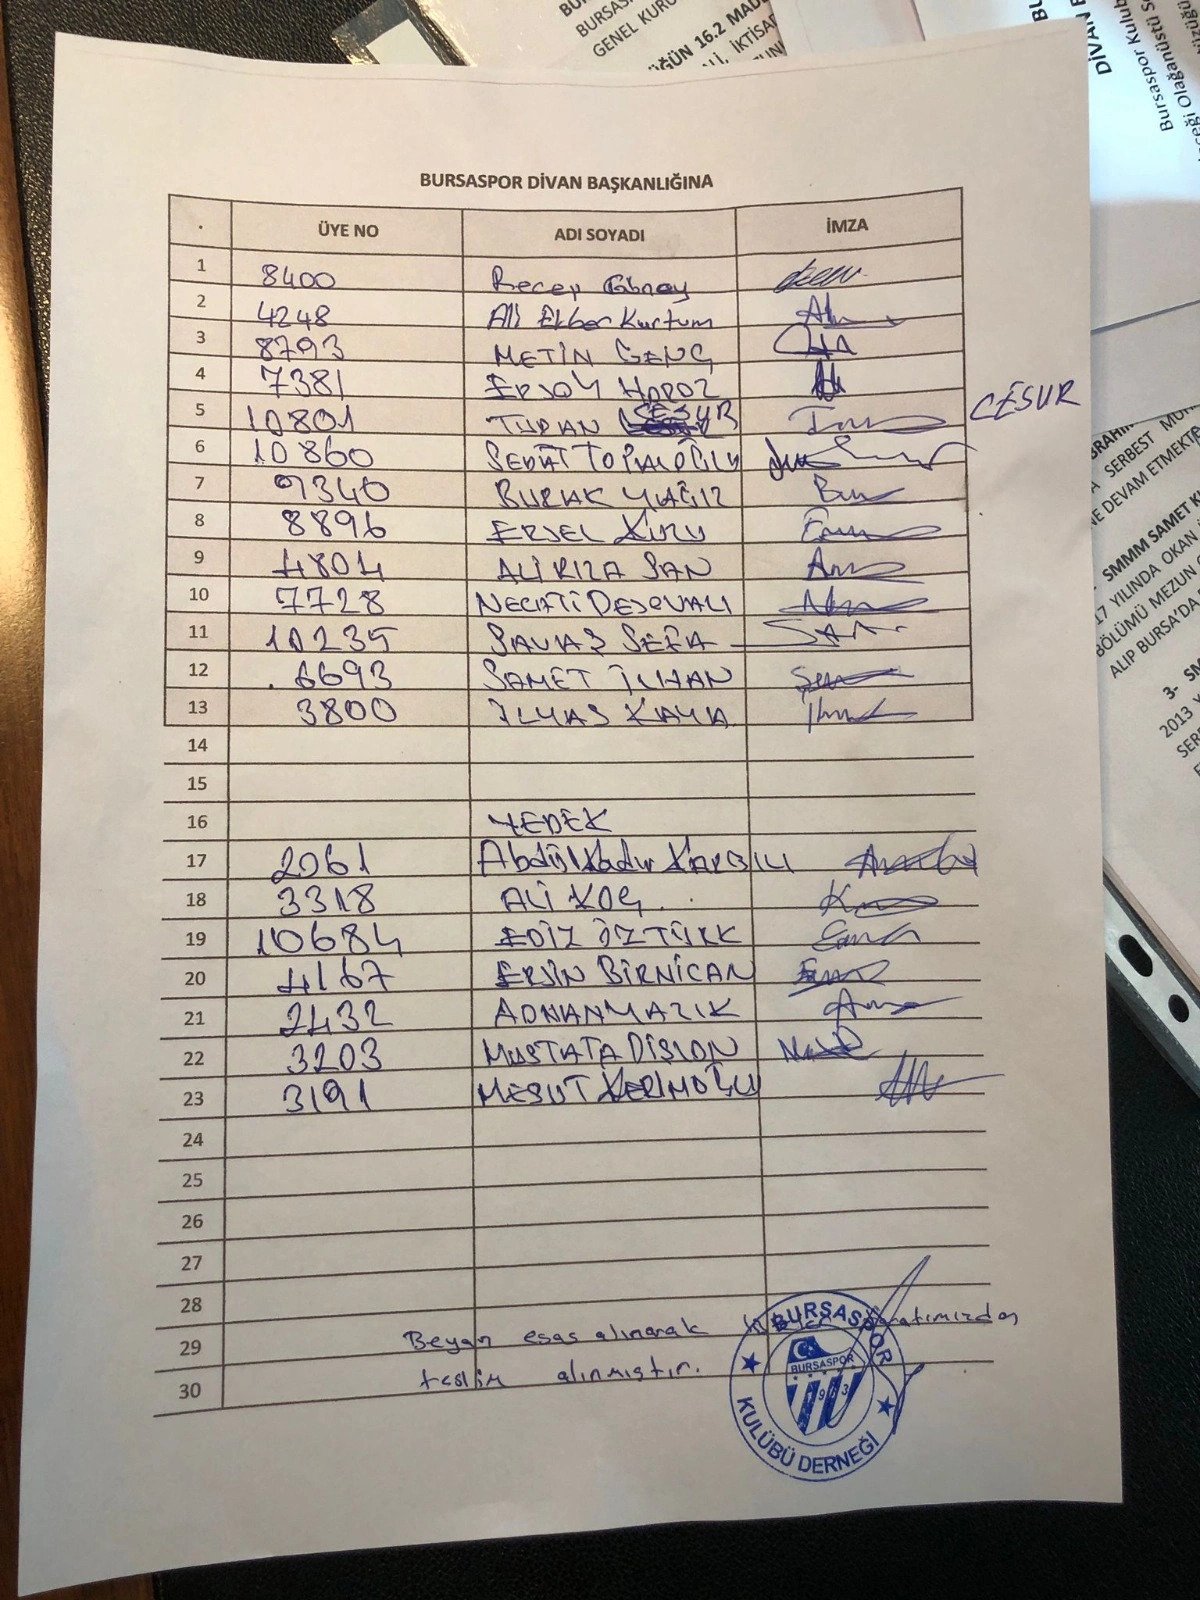 BURSASPOR DİVAN BAŞKANLIĞINA
. ÜYE NO ADI SOYADI İMZA
1 8400 Recep Günay
2 4248 Ali Ekber Kurtum
3 8793 METİN GENÇ
4 7381 ERSOY HOROZ
5 10801 TURAN CESUR CESUR
6 10860 SEDAT TOPALOĞLU
7 9340 BURAK YAĞIZ
8 8896 ERSEL KURU
9 4804 ALİ RIZA ŞAN
10 7728 NECATİ
11 10235 SAVAŞ SEFA
12 6693 SAMET İLHAN
13 3800 İLYAS KAYA
14
15
16 YEDEK
17 2061 Abdülkadir
18 3318 ALİ KOÇ
19 10684 EDİZ ÖZTÜRK
20 4167 ERSİN BİRNİCAN
21 2432 ADNAN MAZIK
22 3203 MUSTAFA
23 3191 MESUT KERİMOĞLU
24
25
26
27
28
29 Beyan esas alınarak
30 teslim alınmıştır.
BURSASPOR
BURSASPOR
KULÜBÜ DERNEĞİ
GENEL KURU
DİVAN B
Bursaspor Kulub
SERBEST
NE DEVAM ETMEKTE
SMMM SAMET
17 YILINDA OKAN
BÖLÜMÜ MEZUN
ALIP BURSA'DA
3- SM
2013